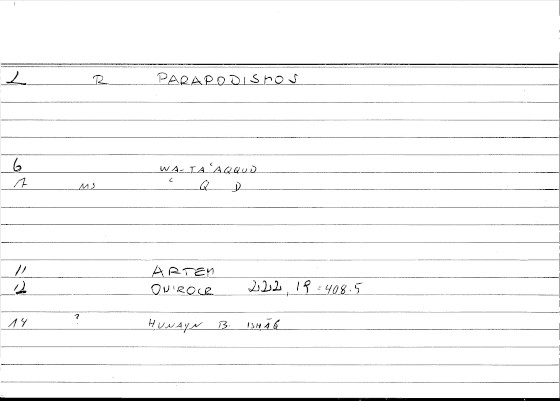 1 R PARAPODISMOS
6 WA-TAʿAQQUD
7 MS ʿ Q D
11 ARTEM
12 222, 19 = 408.5
14 ? HUNAYN B. ISHĀQ